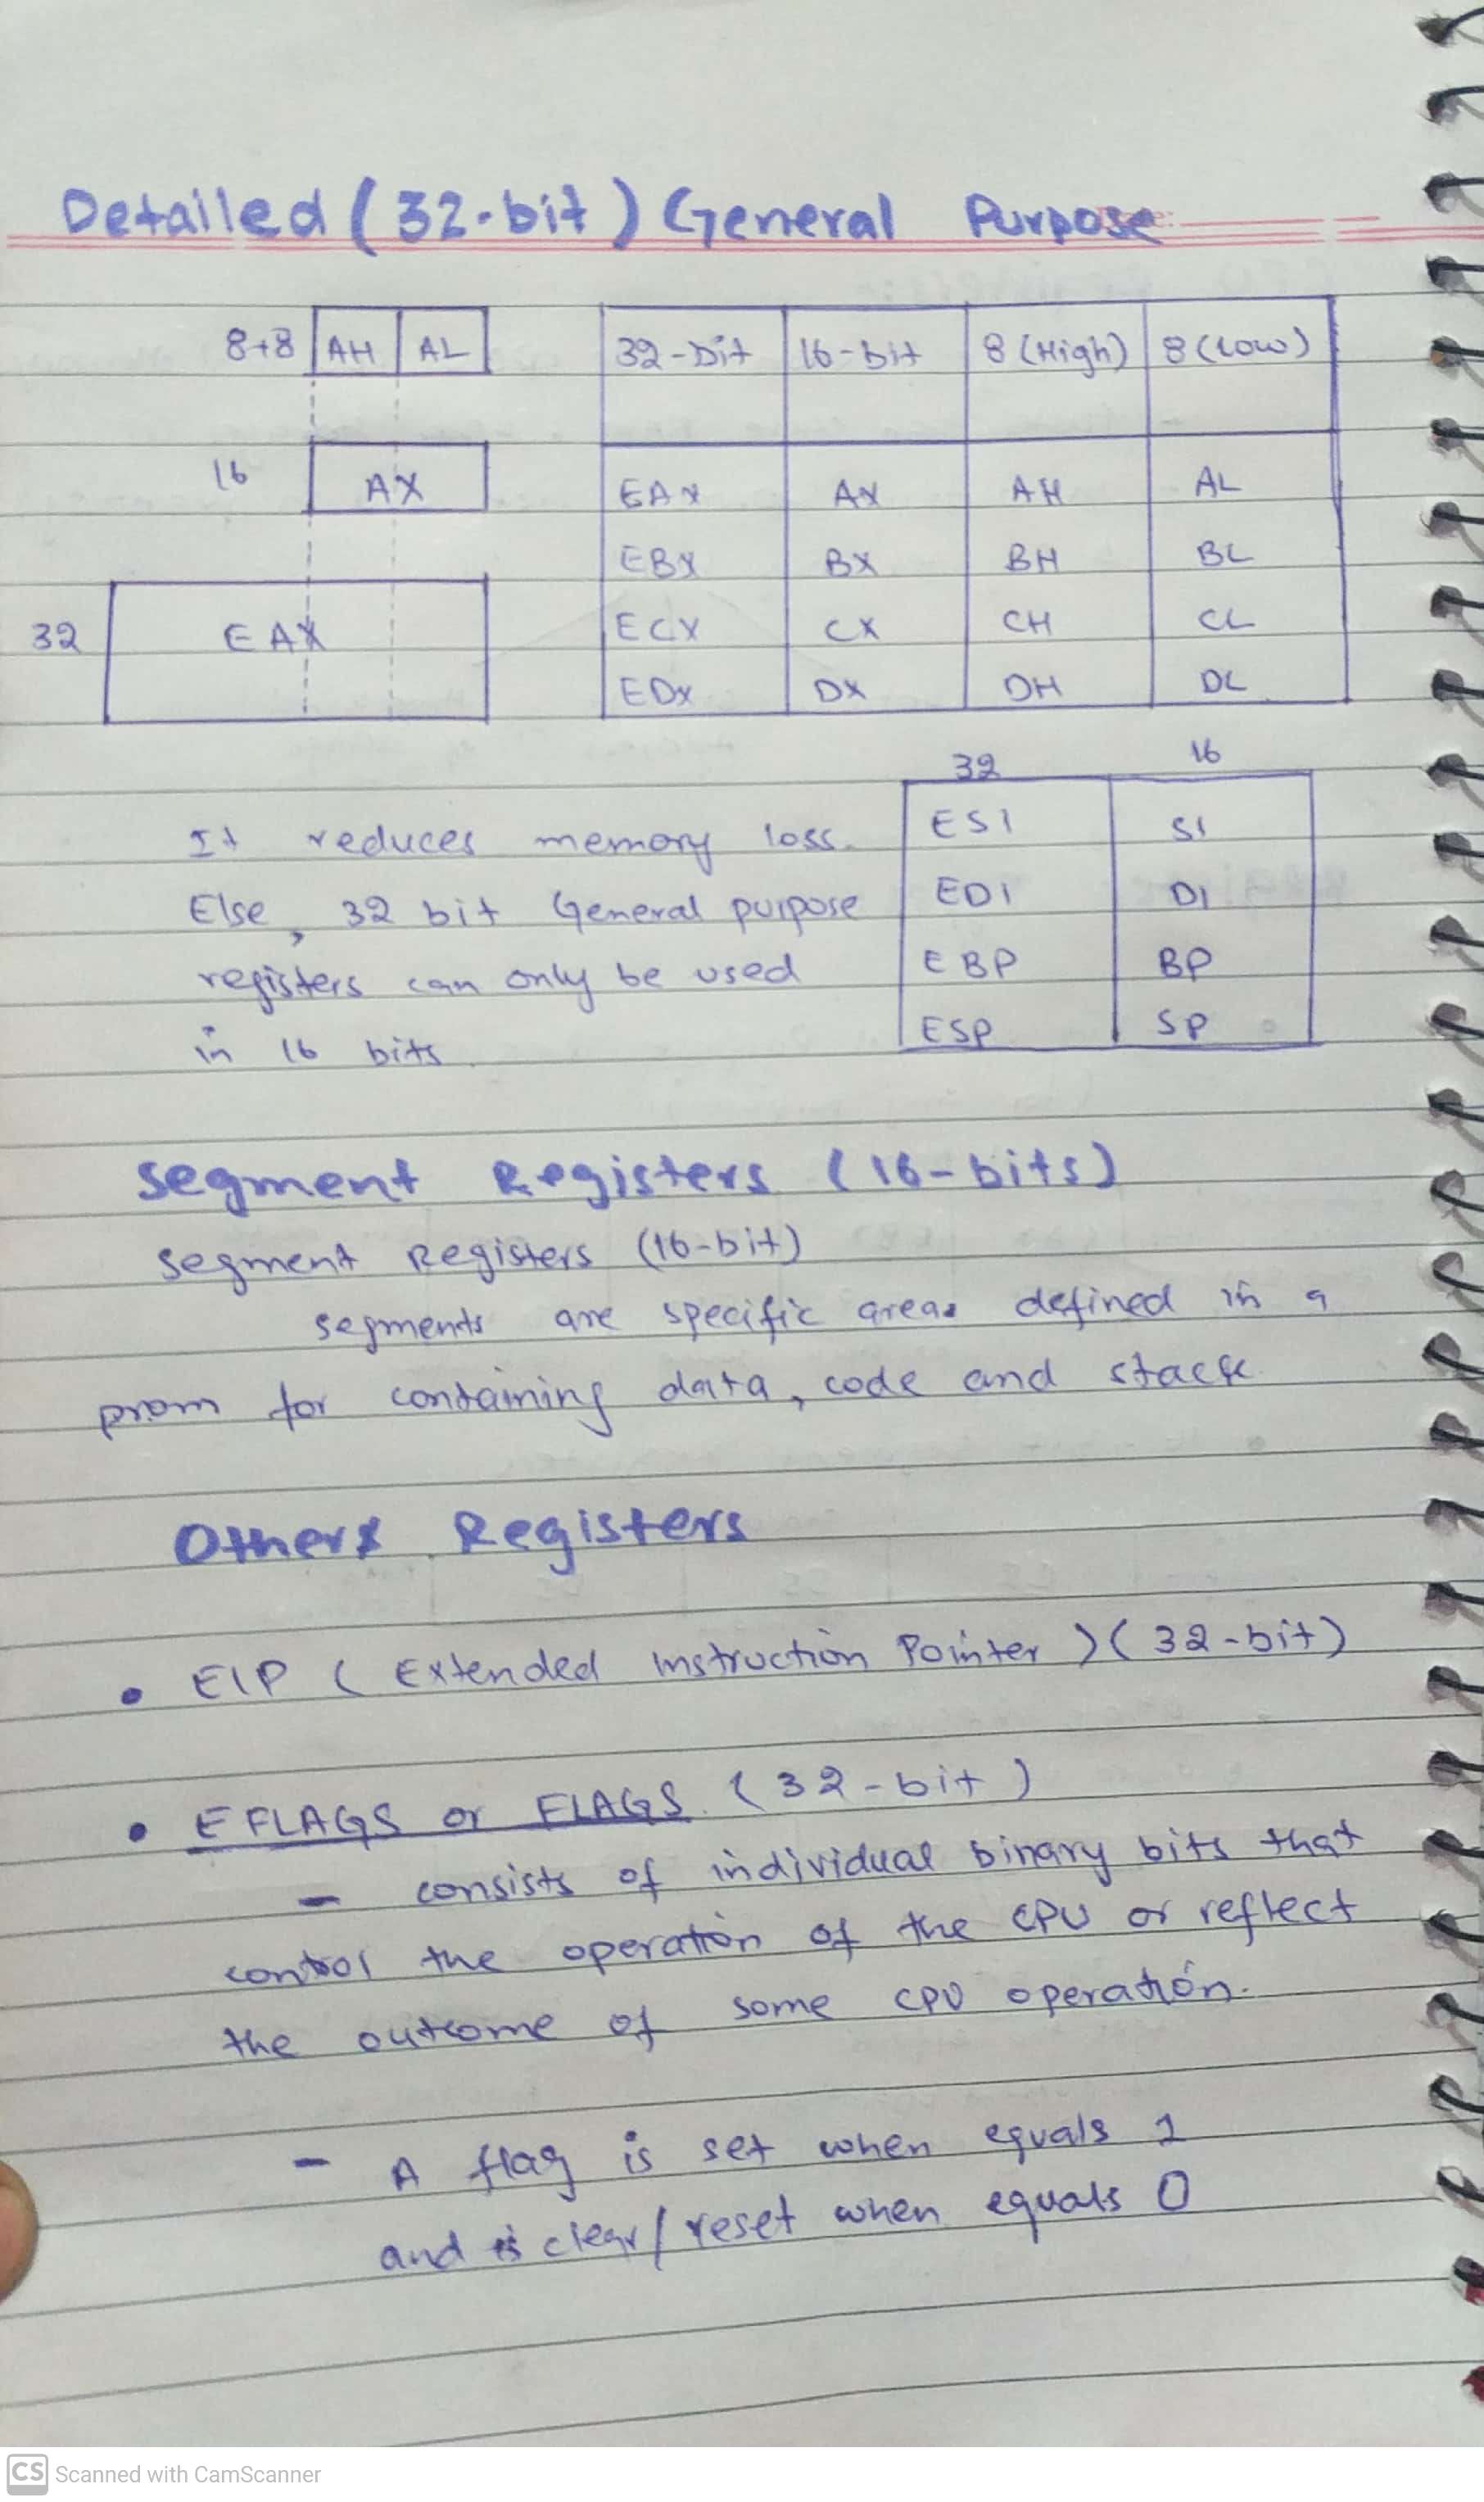 Detailed (32-bit) General Purpose
8+8 AH AL
16 AX
32 EAX
32-bit 16-bit 8 (High) 8 (Low)
EAX AX AH AL
EBX BX BH BL
ECX CX CH CL
EDX DX DH DL
32 16
ESI SI
EDI DI
EBP BP
ESP SP
It reduces memory loss.
Else, 32 bit General purpose
registers can only be used
in 16 bits
Segment Registers (16-bits)
Segment Registers (16-bit)
segments are specific areas defined in a
prom for containing data, code and stack
Others Registers
• EIP (Extended Instruction Pointer) (32-bit)
• EFLAGS or FLAGS (32-bit)
- consists of individual binary bits that
control the operation of the CPU or reflect
the outcome of some CPU operation.
- A flag is set when equals 1
and is clear/reset when equals 0
CS Scanned with CamScanner